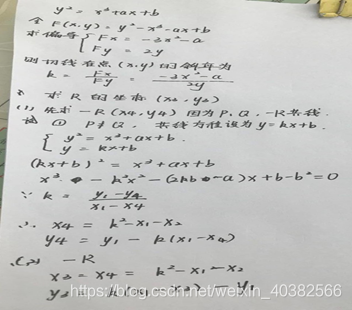 y² = x³+ax+b
令 F(x,y) = y²-x³-ax+b
求偏导 { Fx = -3x²-a
Fy = 2y
则切线在点(x,y)的斜率为
k = Fx/Fy = -3x²-a/2y
求 R 的坐标 (x3, y3)
(1) 先求 -R (x4, y4) 因为 P, Q, -R共线
① P≠Q, 共线方程设为 y=kx+b.
{ y² = x³+ax+b.
y = kx+b
(kx+b)² = x³+ax+b
x³ - k²x² - (2kb-a)x+b-b²=0
∵ k = y1-y4/x1-x4
∴ x4 = k²-x1-x2
y4 = y1 - k(x1-x4)
(2) -R
x3 = x4 = k²-x1-x2
https://blog.csdn.net/weixin_40382566